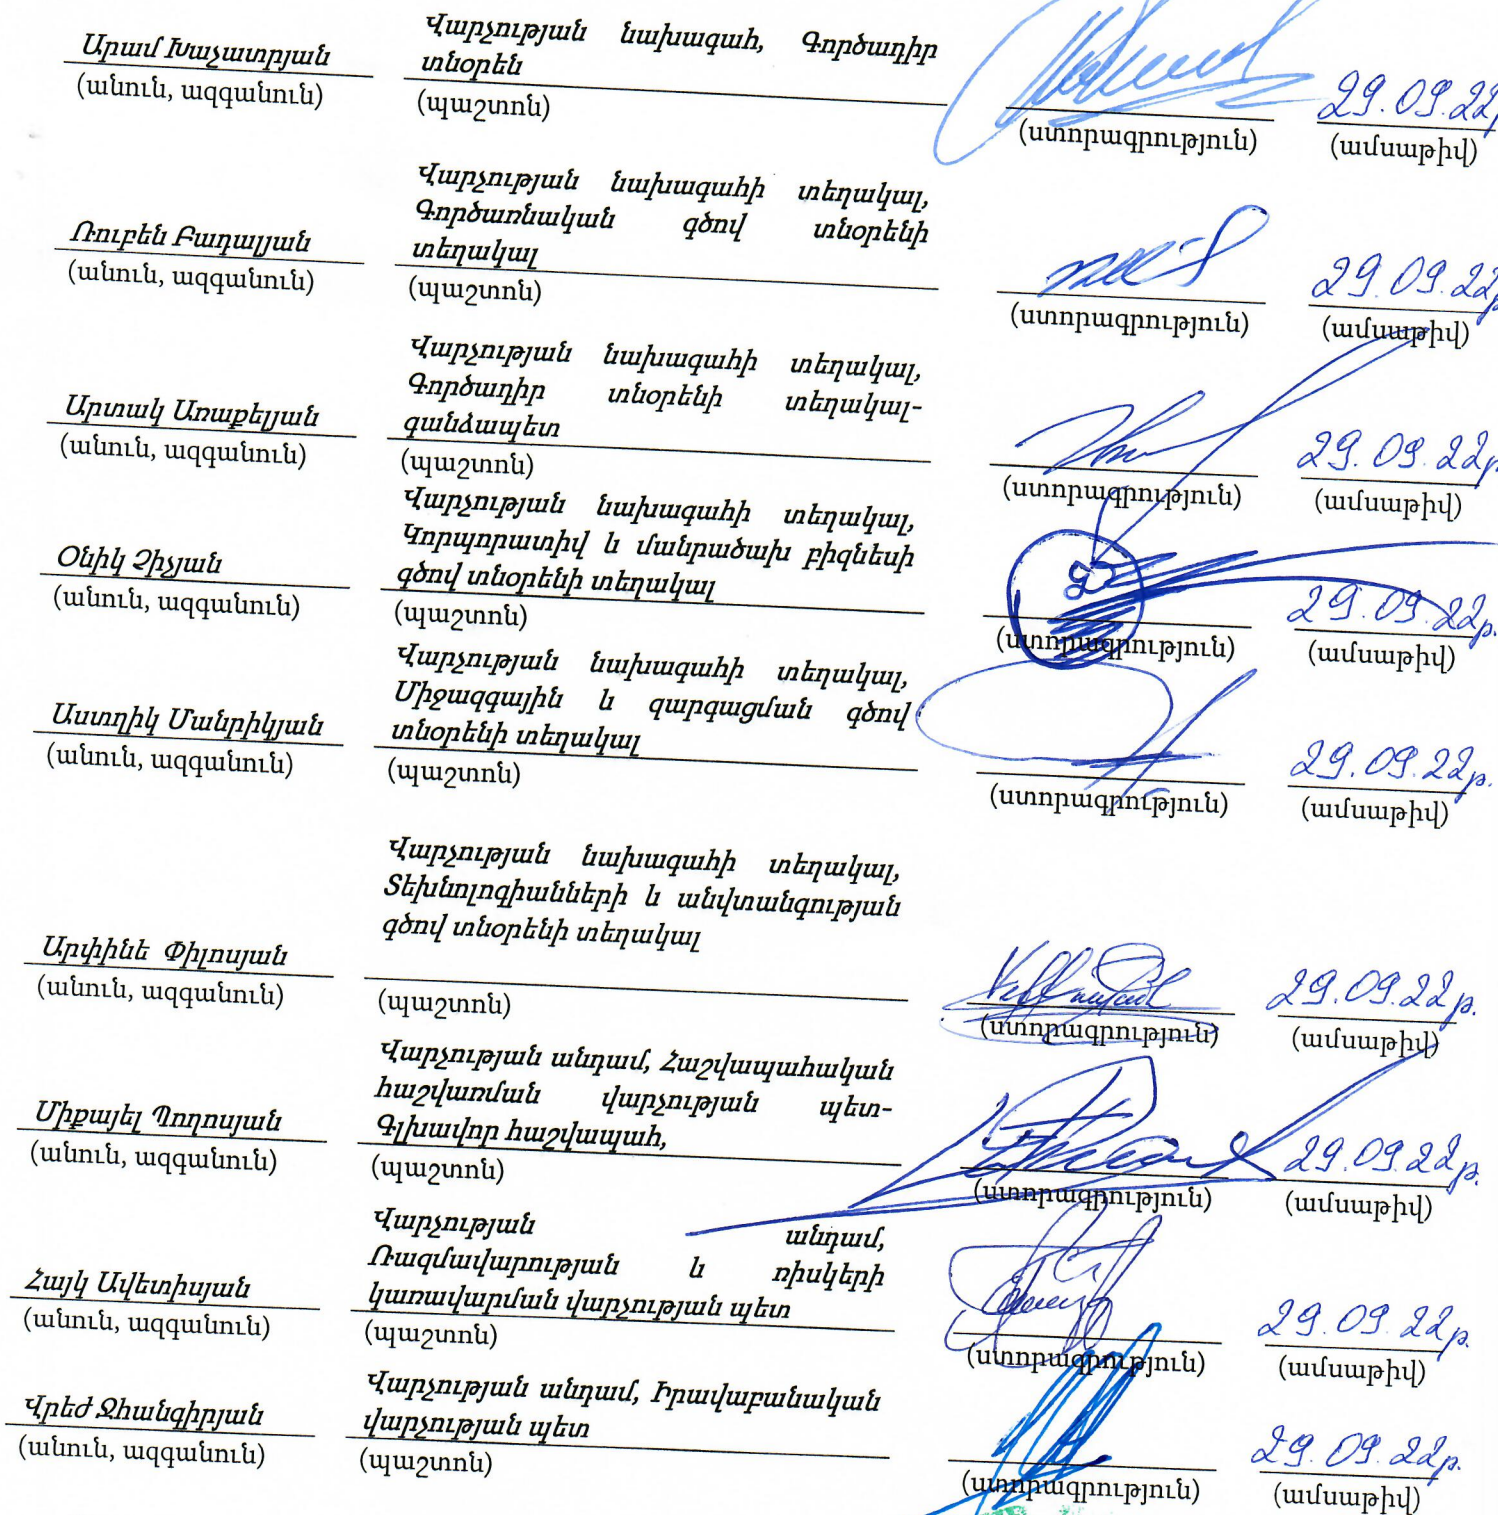 Արամ Խաչատրյան
(անուն, ազգանուն)
Վարչության նախագահ, Գործադիր
տնօրեն
(պաշտոն)
(ստորագրություն)
29.09.22թ
(ամսաթիվ)
Ռուբեն Բադալյան
(անուն, ազգանուն)
Վարչության նախագահի տեղակալ,
Գործառնական գծով տնօրենի
տեղակալ
(պաշտոն)
(ստորագրություն)
29.09.22թ
(ամսաթիվ)
Արտակ Առաքելյան
(անուն, ազգանուն)
Վարչության նախագահի տեղակալ,
Գործադիր տնօրենի տեղակալ-
գանձապետ
(պաշտոն)
(ստորագրություն)
29.09.22թ
(ամսաթիվ)
Օնիկ Չիչյան
(անուն, ազգանուն)
Վարչության նախագահի տեղակալ,
Կորպորատիվ և մանրածախ բիզնեսի
գծով տնօրենի տեղակալ
(պաշտոն)
(ստորագրություն)
29.09.22թ.
(ամսաթիվ)
Աստղիկ Մանրիկյան
(անուն, ազգանուն)
Վարչության նախագահի տեղակալ,
Միջազգային և զարգացման գծով
տնօրենի տեղակալ
(պաշտոն)
(ստորագրություն)
29.09.22թ.
(ամսաթիվ)
Արփինե Փիլոսյան
(անուն, ազգանուն)
Վարչության նախագահի տեղակալ,
Տեխնոլոգիանների և անվտանգության
գծով տնօրենի տեղակալ
(պաշտոն)
(ստորագրություն)
29.09.22թ.
(ամսաթիվ)
Միքայել Պողոսյան
(անուն, ազգանուն)
Վարչության անդամ, Հաշվապահական
հաշվառման վարչության պետ-
Գլխավոր հաշվապահ,
(պաշտոն)
(ստորագրություն)
29.09.22թ.
(ամսաթիվ)
Հայկ Ավետիսյան
(անուն, ազգանուն)
Վարչության անդամ,
Ռազմավարության և ռիսկերի
կառավարման վարչության պետ
(պաշտոն)
(ստորագրություն)
29.09.22թ.
(ամսաթիվ)
Վրեժ Ջհանգիրյան
(անուն, ազգանուն)
Վարչության անդամ, Իրավաբանական
վարչության պետ
(պաշտոն)
(ստորագրություն)
29.09.22թ.
(ամսաթիվ)